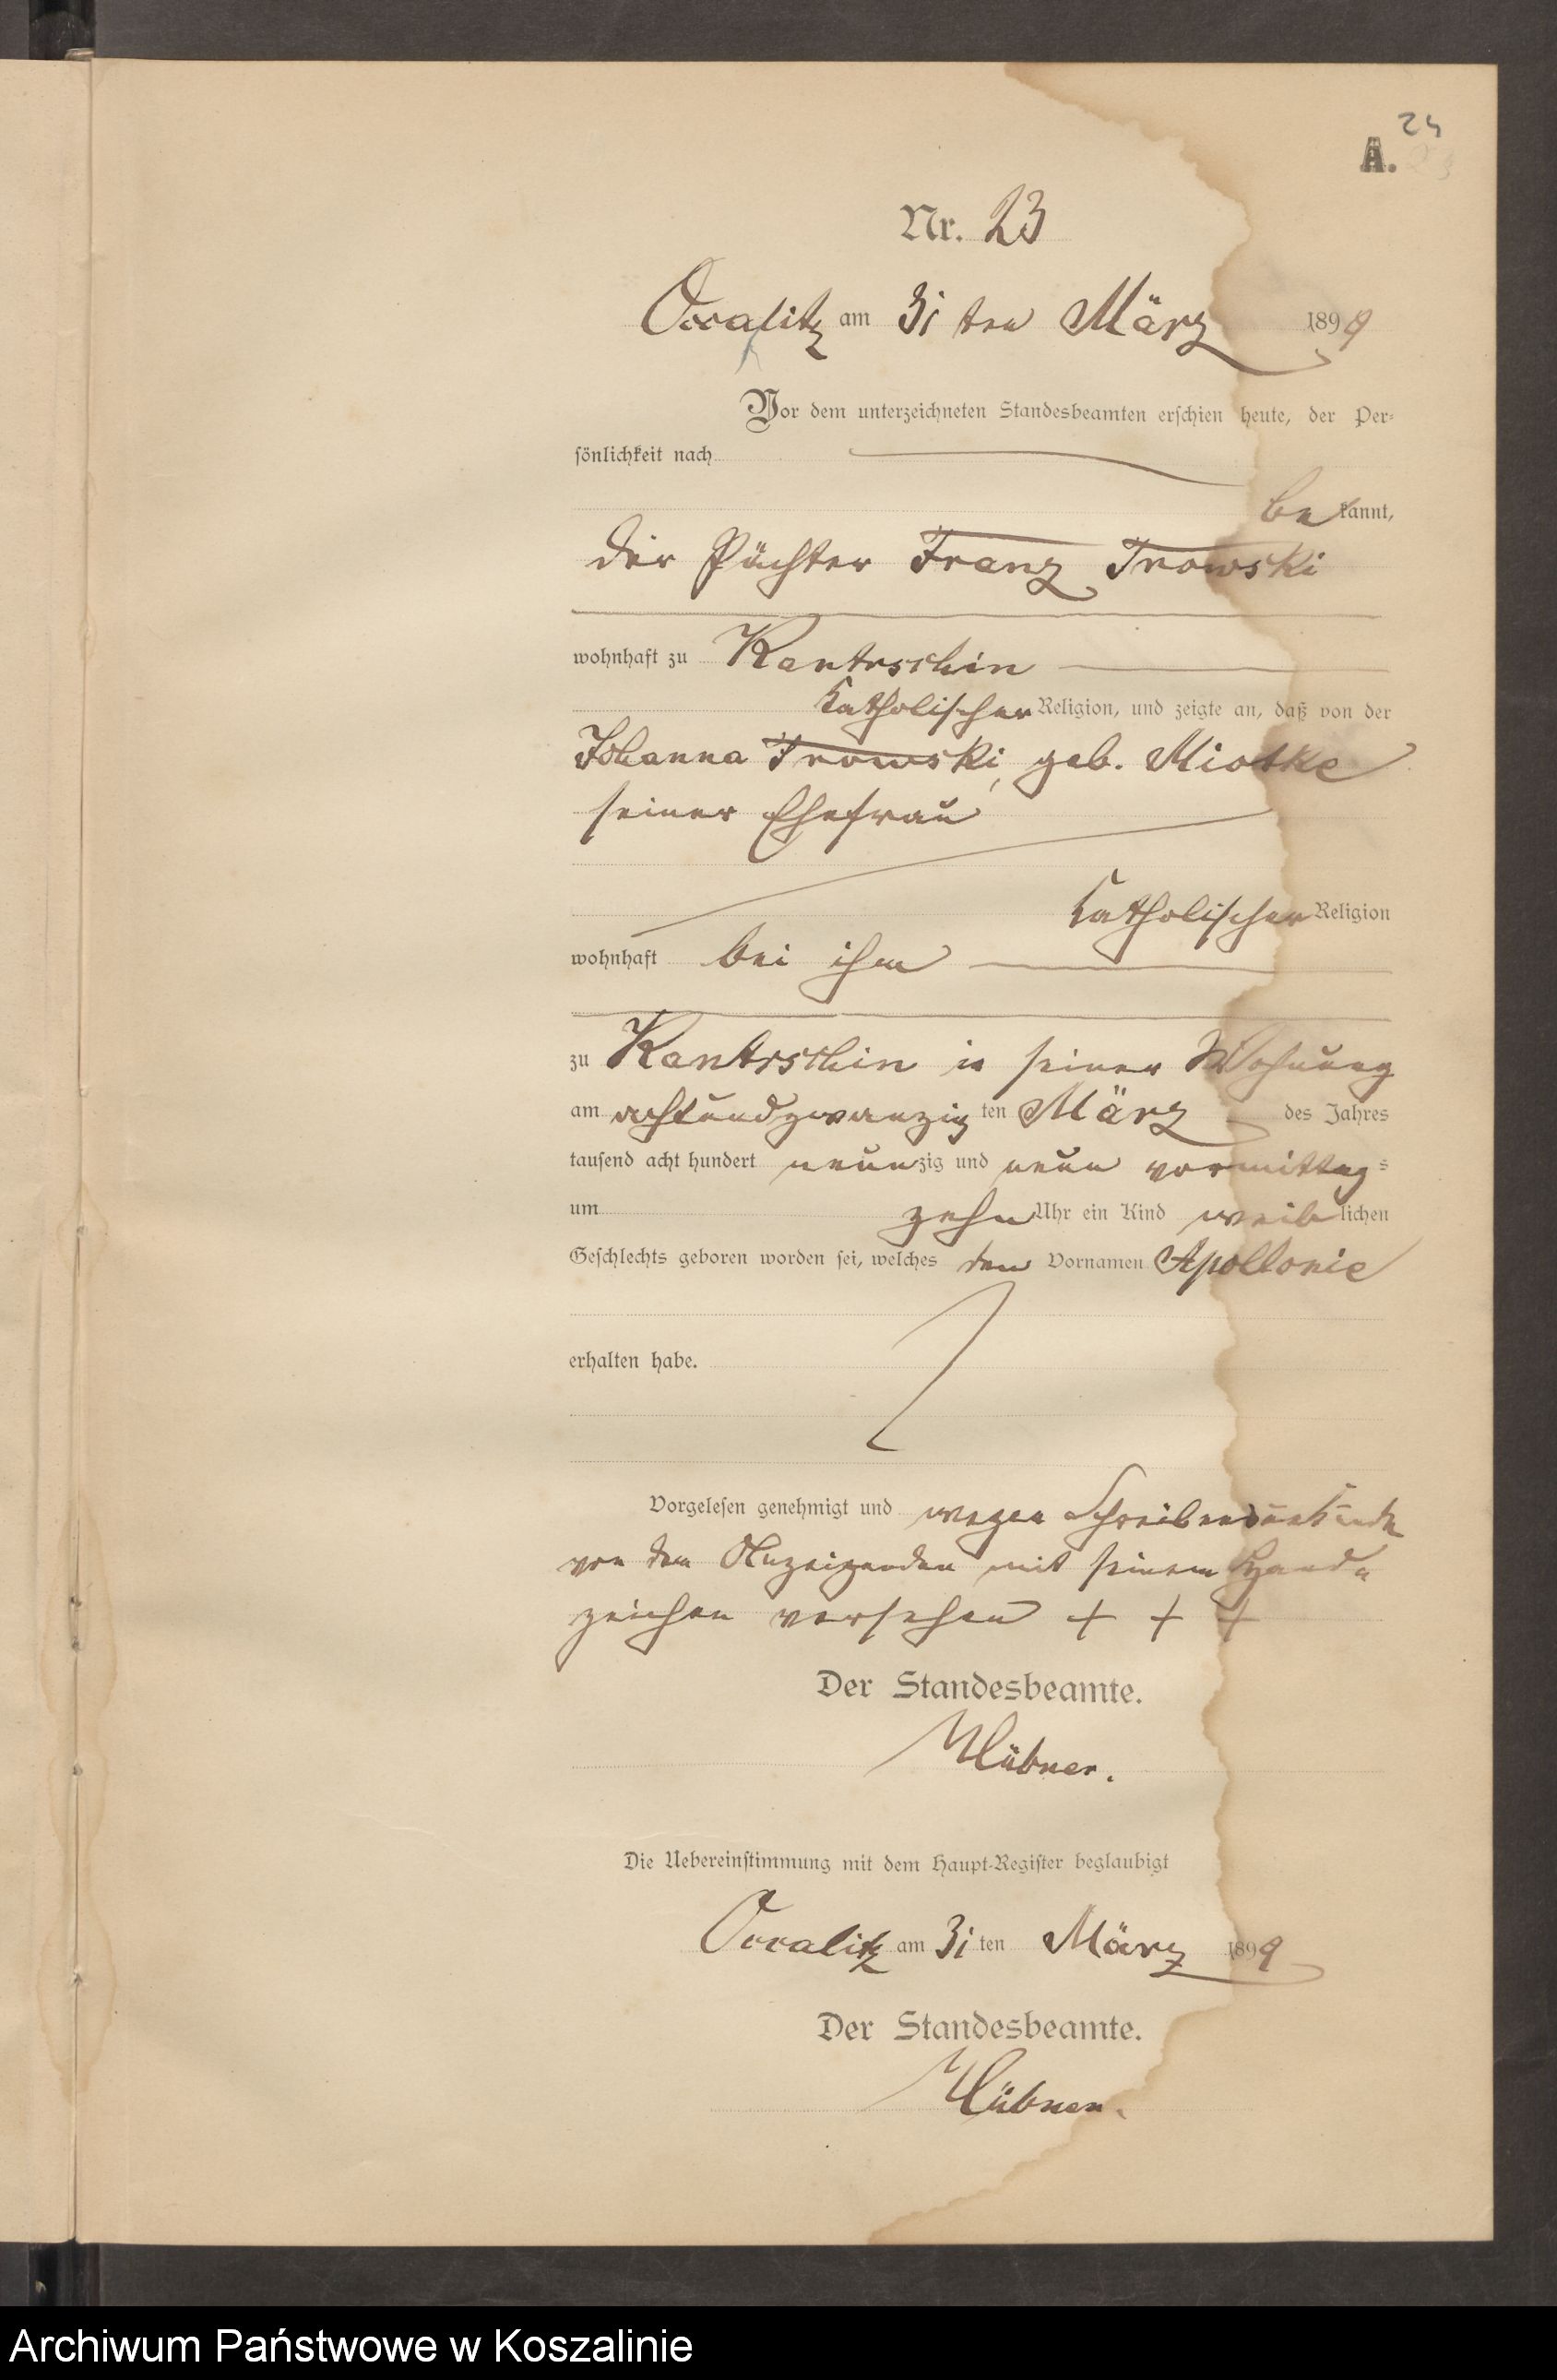 24
A.
Nr. 23
Occalitz am 31 ten März 1899
Vor dem unterzeichneten Standesbeamten erschien heute, der Per-
sönlichkeit nach
be kannt,
der Pächter Franz Trowski
wohnhaft zu Kantrschin
katholischer Religion, und zeigte an, daß von der
Johanna Trowski, geb. Miotke
seiner Ehefrau
katholischer Religion
wohnhaft bei ihm
zu Kantrschin in seiner Wohnung
am achtundzwanzig ten März des Jahres
tausend acht hundert neunzig und neun vormittags
um zehn Uhr ein Kind weiblichen
Geschlechts geboren worden sei, welches den Vornamen Apollonie
erhalten habe.
Vorgelesen genehmigt und wegen Schreibensunkunde
von dem Anzeigenden mit seinem Hand-
zeichen versehen + + +
Der Standesbeamte.
Hübner.
Die Uebereinstimmung mit dem Haupt-Register beglaubigt
Occalitz am 31 ten März 1899
Der Standesbeamte.
Hübner.
Archiwum Państwowe w Koszalinie